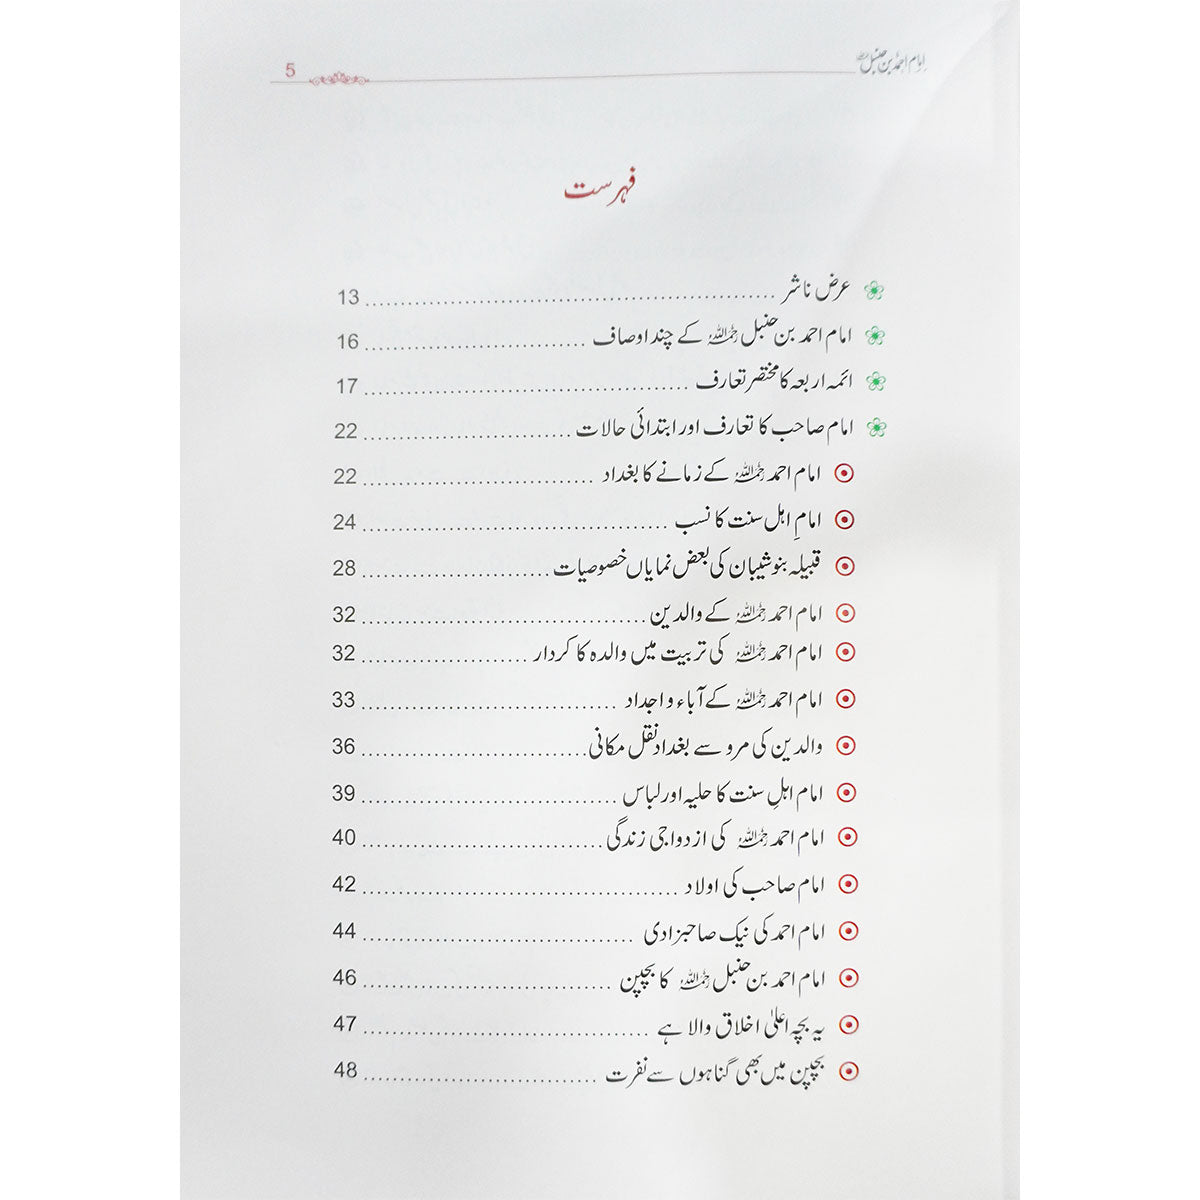 امام احمد بن حنبل رحمہ اللہ 5
فہرست
عرض ناشر 13
امام احمد بن حنبل رحمہ اللہ کے چند اوصاف 16
ائمہ اربعہ کا مختصر تعارف 17
امام صاحب کا تعارف اور ابتدائی حالات 22
امام احمد رحمہ اللہ کے زمانے کا بغداد 22
امامِ اہل سنت کا نسب 24
قبیلہ بنو شیبان کی بعض نمایاں خصوصیات 28
امام احمد رحمہ اللہ کے والدین 32
امام احمد رحمہ اللہ کی تربیت میں والدہ کا کردار 32
امام احمد رحمہ اللہ کے آباء و اجداد 33
والدین کی مرو سے بغداد نقل مکانی 36
امام اہلِ سنت کا حلیہ اور لباس 39
امام احمد رحمہ اللہ کی ازدواجی زندگی 40
امام صاحب کی اولاد 42
امام احمد کی نیک صاحبزادی 44
امام احمد بن حنبل رحمہ اللہ کا بچپن 46
یہ بچہ اعلیٰ اخلاق والا ہے 47
بچپن میں بھی گناہوں سے نفرت 48